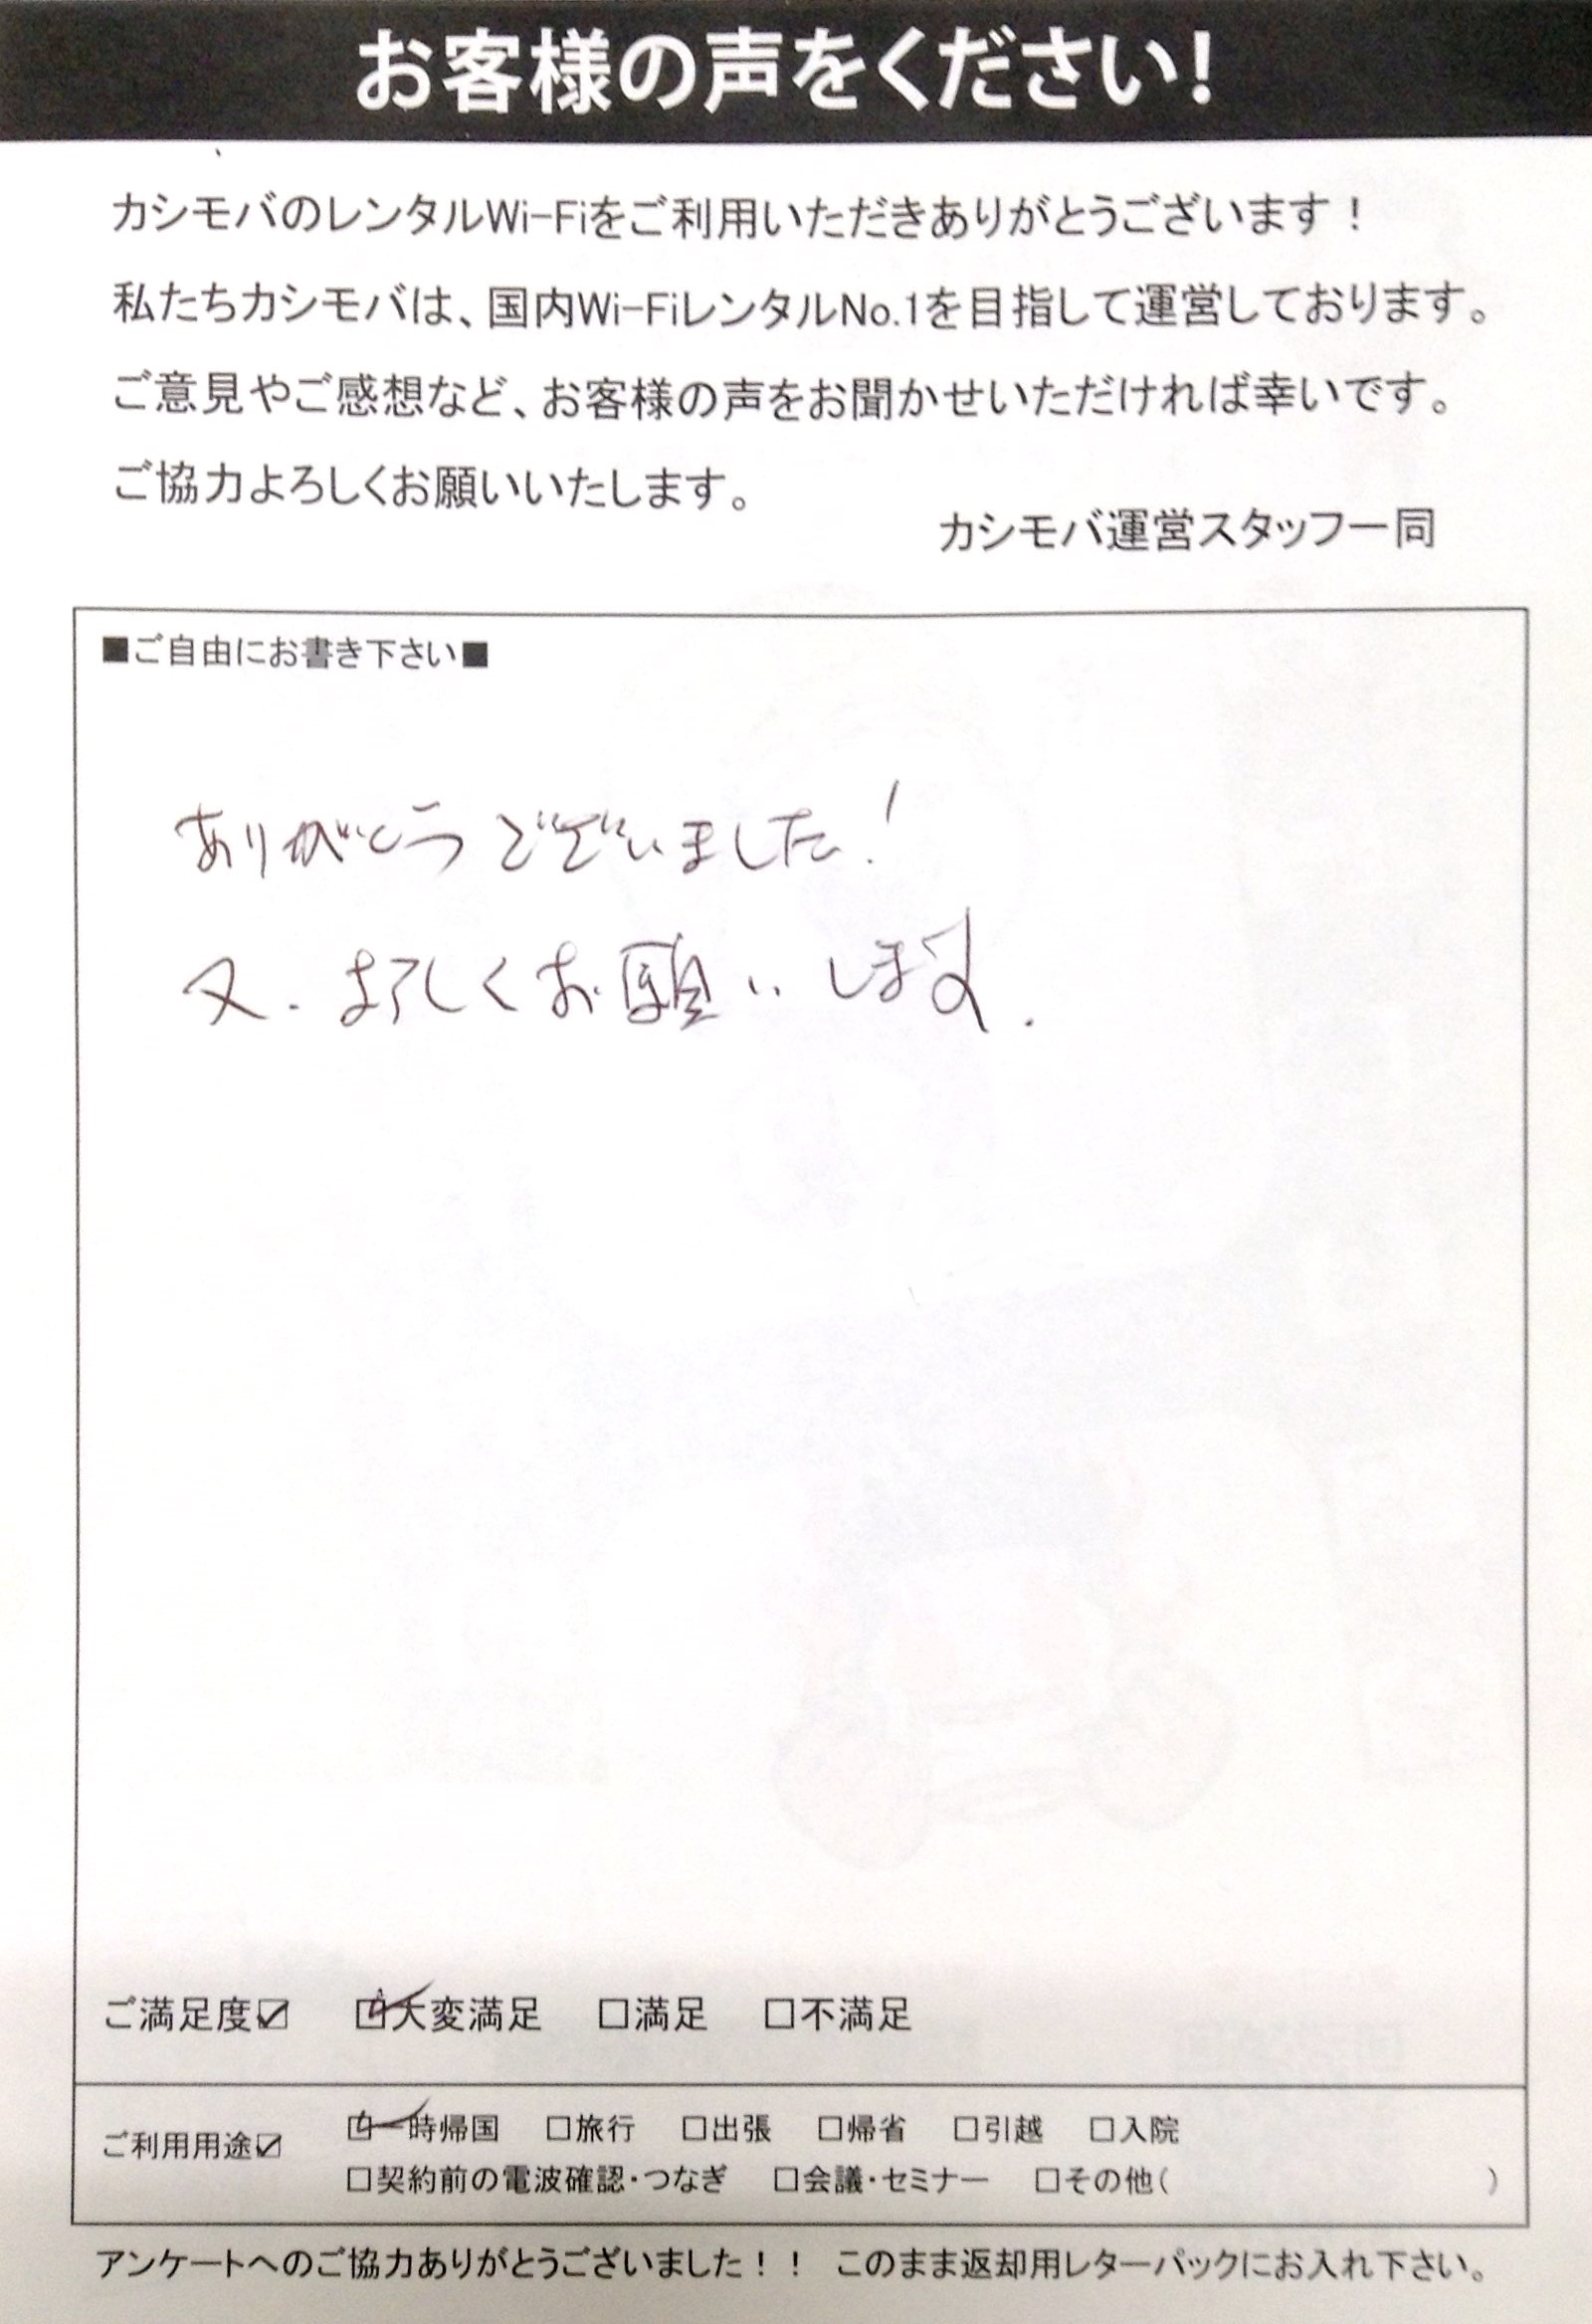 お客様の声をください!
カシモバのレンタルWi-Fiをご利用いただきありがとうございます！
私たちカシモバは、国内Wi-FiレンタルNo.1を目指して運営しております。
ご意見やご感想など、お客様の声をお聞かせいただければ幸いです。
ご協力よろしくお願いいたします。
カシモバ運営スタッフ一同
■ご自由にお書き下さい■
ありがとうございました!
又、よろしくお願いします.
ご満足度☑ ☑大変満足 □満足 □不満足
ご利用用途☑ ☑一時帰国 □旅行 □出張 □帰省 □引越 □入院
□契約前の電波確認・つなぎ □会議・セミナー □その他( )
アンケートへのご協力ありがとうございました！！ このまま返却用レターパックにお入れ下さい。